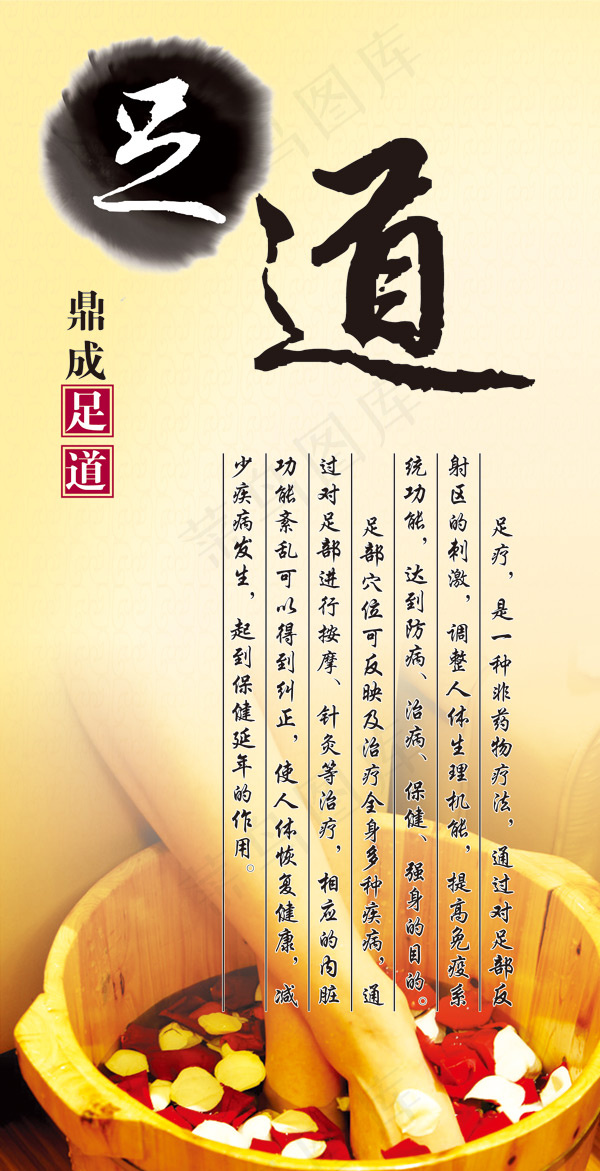 足道
鼎成足道
足疗，是一种非药物疗法，通过对足部反
射区的刺激，调整人体生理机能，提高免疫系
统功能，达到防病、治病、保健、强身的目的。
足部穴位可反映及治疗全身多种疾病，通
过对足部进行按摩、针灸等治疗，相应的内脏
功能紊乱可以得到纠正，使人体恢复健康，减
少疾病发生，起到保健延年的作用。